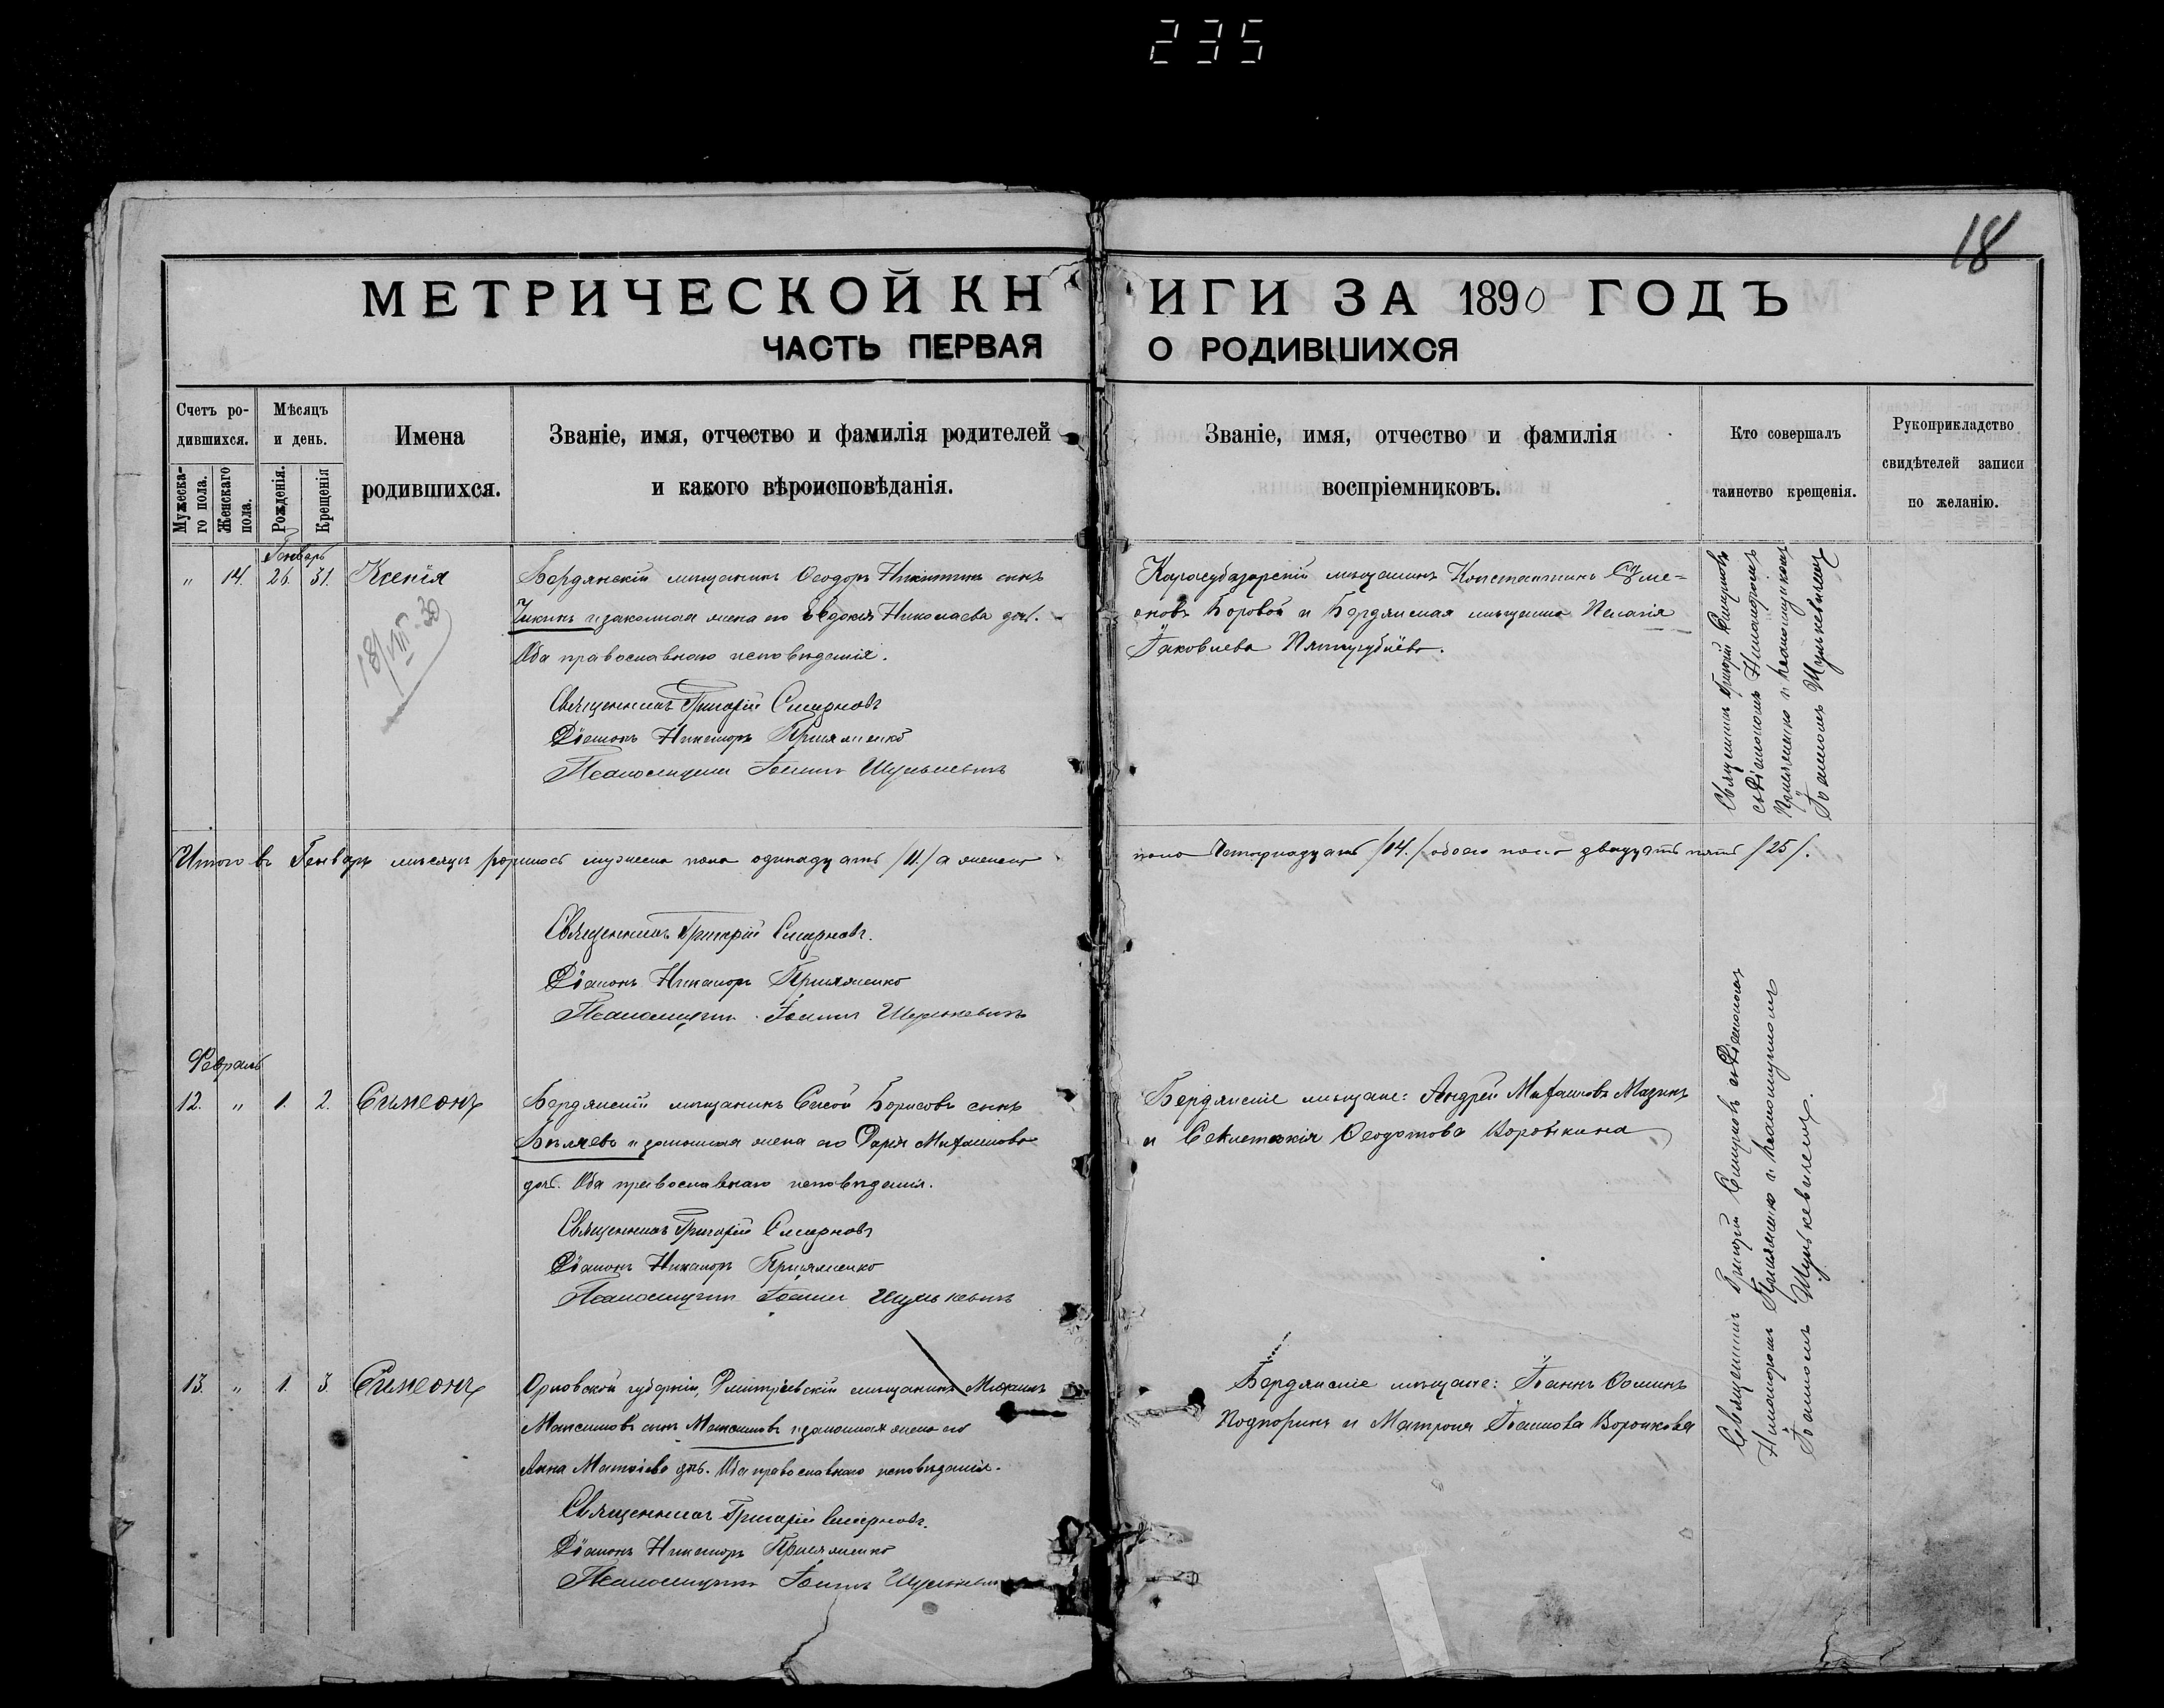 235
18
МЕТРИЧЕСКОЙ КН
ИГИ ЗА 1890 ГОДЪ
ЧАСТЬ ПЕРВАЯ
О РОДИВШИХСЯ
Счетъ ро-
дившихся.
Мужеска-
го пола.
Женскаго
пола.
Мѣсяцъ
и день.
Рожденія.
Крещенія
Имена
родившихся.
Званіе, имя, отчество и фамилія родителей
и какого вѣроисповѣданія.
Званіе, имя, отчество и фамилія
воспріемниковъ.
Кто совершалъ
таинство крещенія.
Рукоприкладство
свидѣтелей записи
по желанію.
Генварь
" 14. 26. 31. Ксенія
18/VIII-30
Бердянскій мѣщанинъ Ѳеодоръ Никитинъ сынъ
Чикинъ и законная жена его Евдокія Николаева доч.
Оба православнаго исповѣданія.
Священникъ Григорій Смирновъ
Діаконъ Никаноръ Присяженко
Псаломщикъ Іоаннъ Шулькевичъ
Карасубазарскій мѣщанинъ Константинъ Симе-
оновъ Боровой и Бердянская мѣщанка Пелагія
Іаковлева
Священникъ Григорій Смирновъ
съ Діакономъ Никаноромъ
Присяженко и псаломщикомъ
Іоанномъ Шулькевичемъ
Итого въ Генварѣ мѣсяцѣ родилось мужеска пола одинадцать /11./ а женска
пола четырнадцать /14./ обоего пола двадцать пять /25/.
Священникъ Григорій Смирновъ.
Діаконъ Никаноръ Присяженко
Псаломщикъ Іоаннъ Шулькевичъ
Февраль
12. " 1. 2. Симеонъ
Бердянскій мѣщанинъ Сисой Борисовъ сынъ
Бѣляевъ и законная жена его Дарія Михаилова
доч. Оба православнаго исповѣданія.
Священникъ Григорій Смирновъ
Діаконъ Никаноръ Присяженко
Псаломщикъ Іоаннъ Шулькевичъ
Бердянскіе мѣщане: Андрей Михаиловъ Мазинъ
и Ѳеодотова Воробкина
Священникъ Григорій Смирновъ съ Діакономъ
Никаноромъ Присяженко и псаломщикомъ
Іоанномъ Шулькевичемъ.
13. " 1. 3. Симеонъ
Орловской губерніи, Дмитріевскій мѣщанинъ
Максимовъ сынъ Максимовъ и законная жена его
Анна Матѳіева доч. Оба православнаго исповѣданія.
Священникъ Григорій Смирновъ.
Діаконъ Никаноръ Присяженко
Псаломщикъ Іоаннъ Шулькевичъ
Бердянскіе мѣщане: Іоаннъ Ѳоминъ
Подпоринъ и Матрона Іоаннова Воронкова